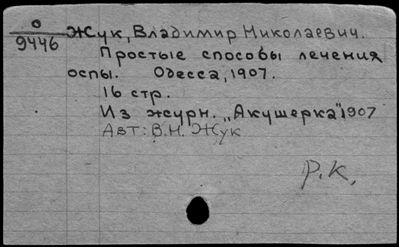 О
9446
Жук, Владимир Николаевич.
Простые способы лечения
оспы. Одесса, 1907.
16 стр.
Из журн. „Акушерка" 1907
Авт: В.Н. Жук
Р.К.